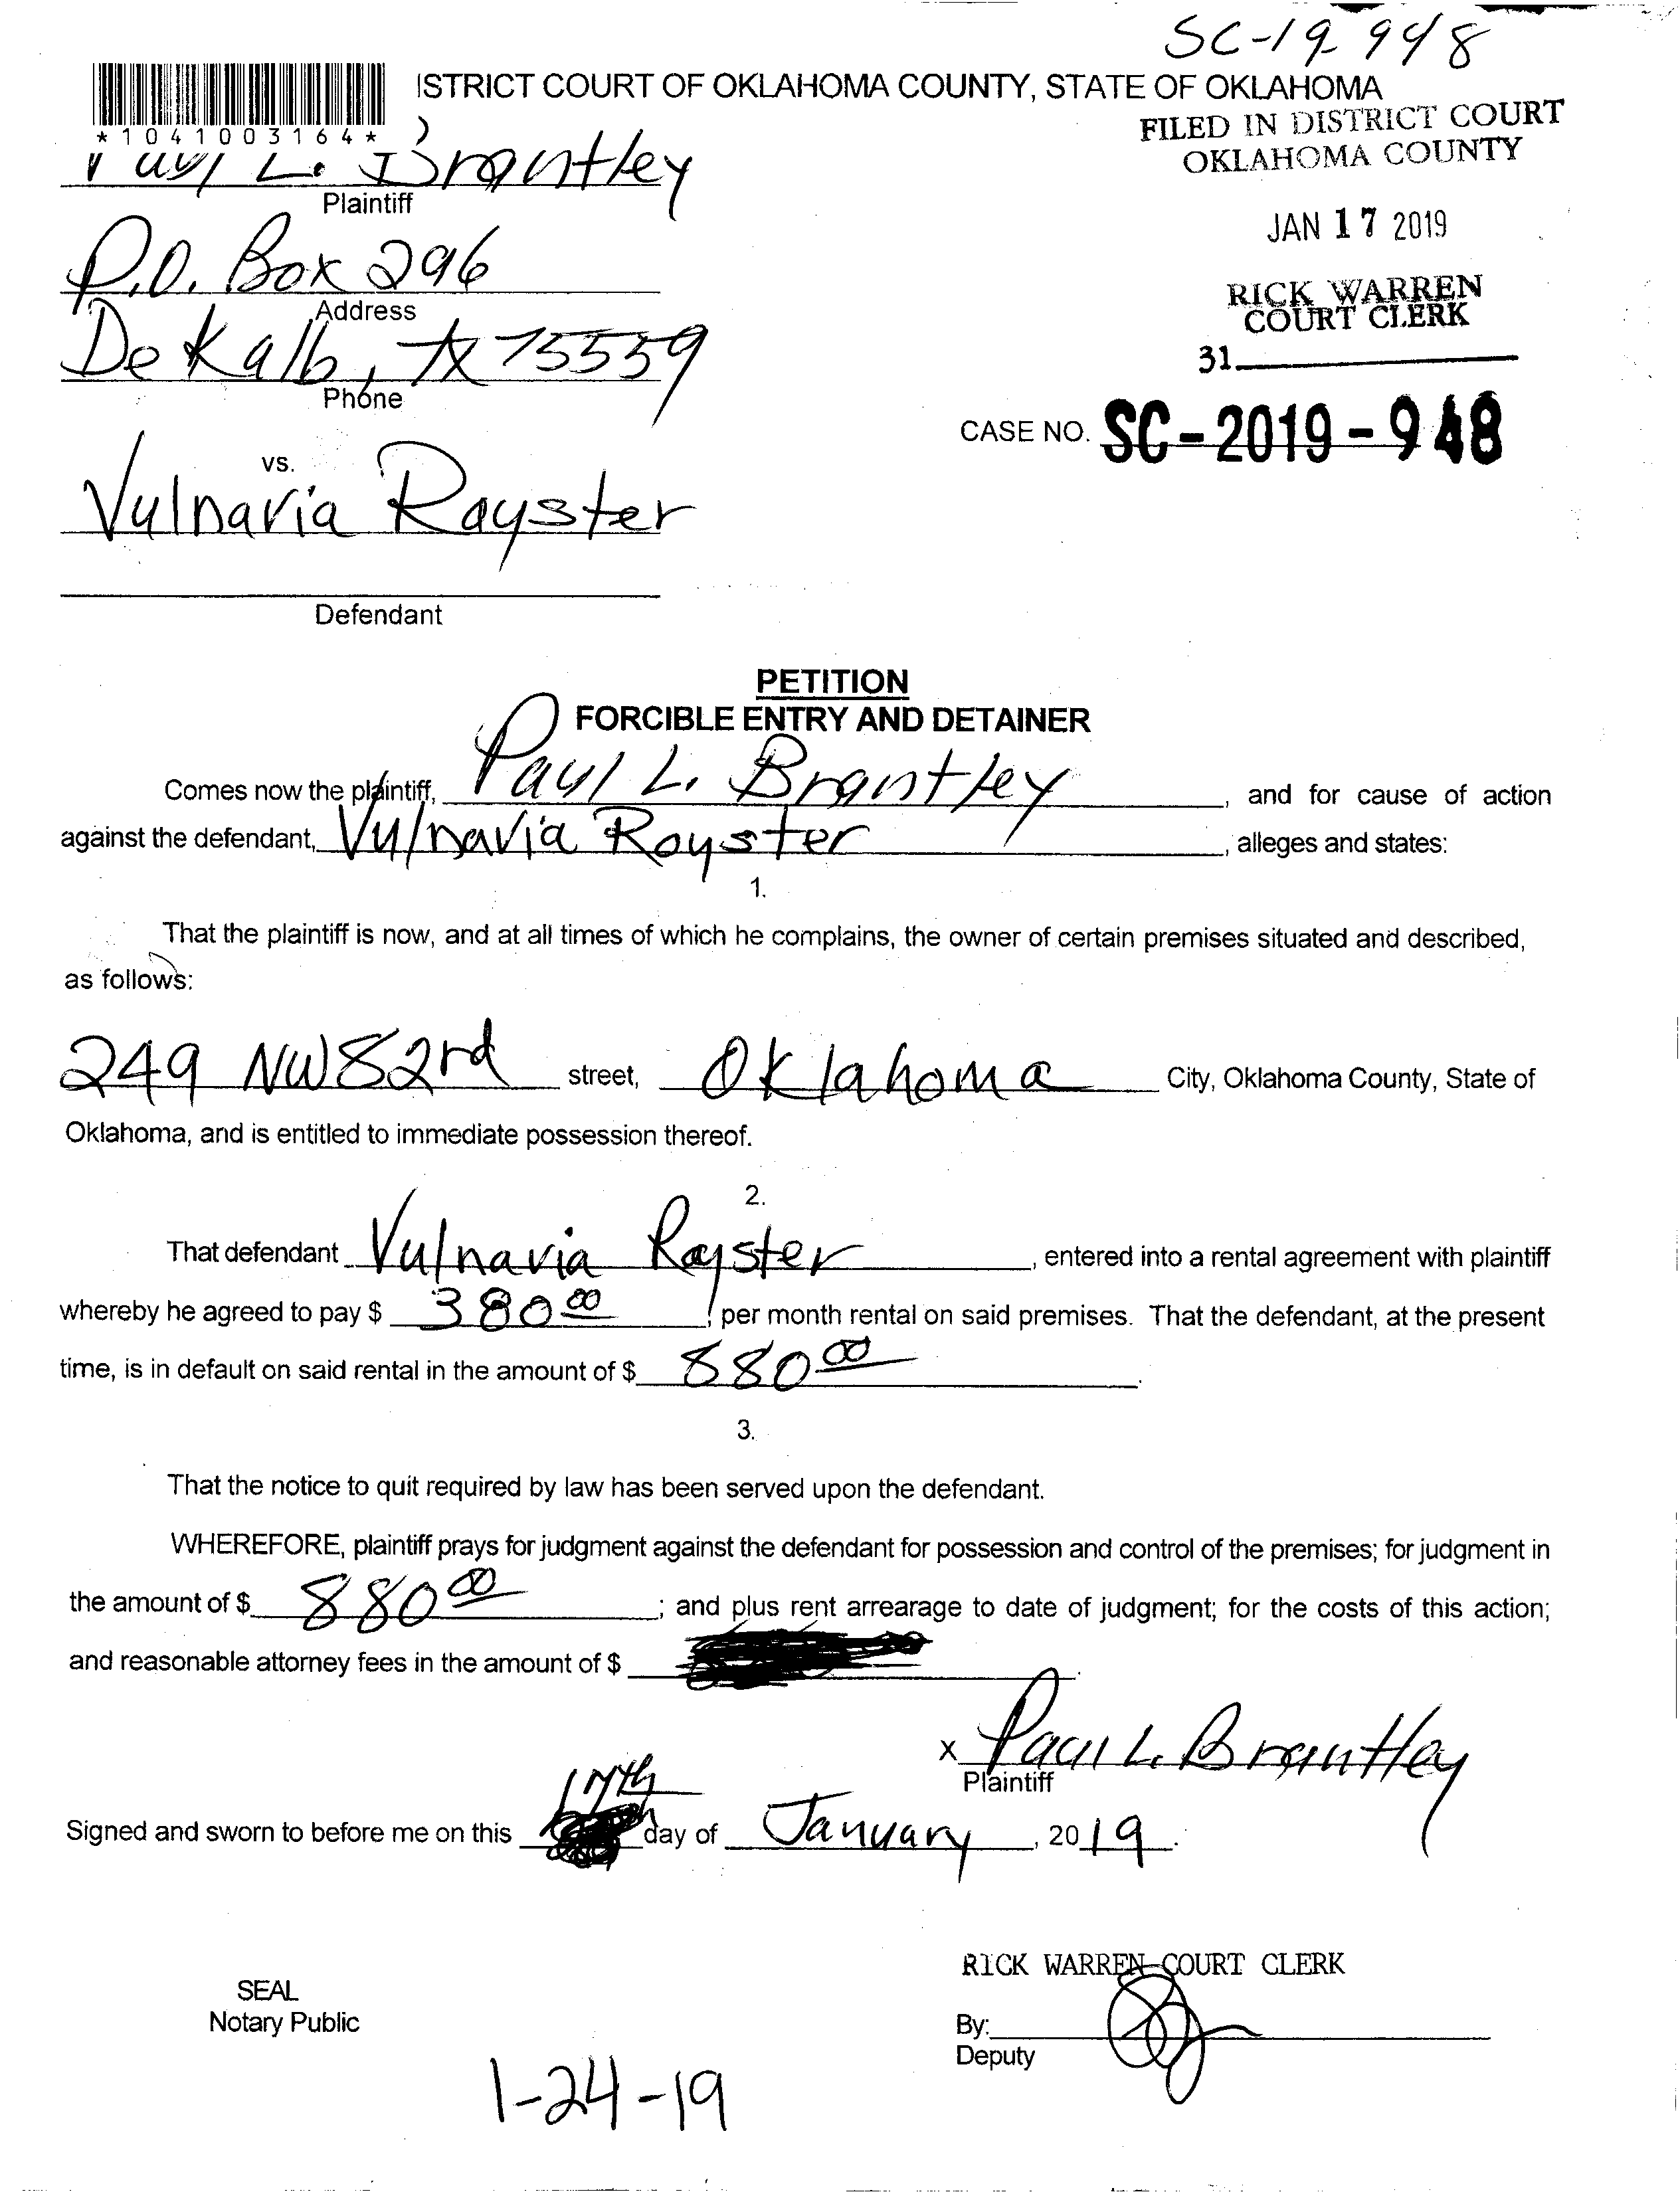 SC-19-948
ISTRICT COURT OF OKLAHOMA COUNTY, STATE OF OKLAHOMA
*1041003164*
FILED IN DISTRICT COURT
OKLAHOMA COUNTY
Paul L. Brantley
Plaintiff
JAN 17 2019
P.O. Box 296
Address
RICK WARREN
COURT CLERK
De Kalb, TX 75559
Phone
31
CASE NO. SC-2019-948
vs.
Vulnavia Royster
Defendant
PETITION
FORCIBLE ENTRY AND DETAINER
Comes now the plaintiff, Paul L. Brantley, and for cause of action
against the defendant, Vulnavia Royster, alleges and states:
1.
That the plaintiff is now, and at all times of which he complains, the owner of certain premises situated and described,
as follows:
249 NW 82rd street, Oklahoma City, Oklahoma County, State of
Oklahoma, and is entitled to immediate possession thereof.
2.
That defendant Vulnavia Royster, entered into a rental agreement with plaintiff
whereby he agreed to pay $ 380 00 per month rental on said premises. That the defendant, at the present
time, is in default on said rental in the amount of $ 880 00.
3.
That the notice to quit required by law has been served upon the defendant.
WHEREFORE, plaintiff prays for judgment against the defendant for possession and control of the premises; for judgment in
the amount of $ 880 00; and plus rent arrearage to date of judgment; for the costs of this action;
and reasonable attorney fees in the amount of $
x Paul L. Brantley
Plaintiff
Signed and sworn to before me on this 17th day of January, 2019.
RICK WARREN COURT CLERK
SEAL
Notary Public
By:
Deputy
1-24-19